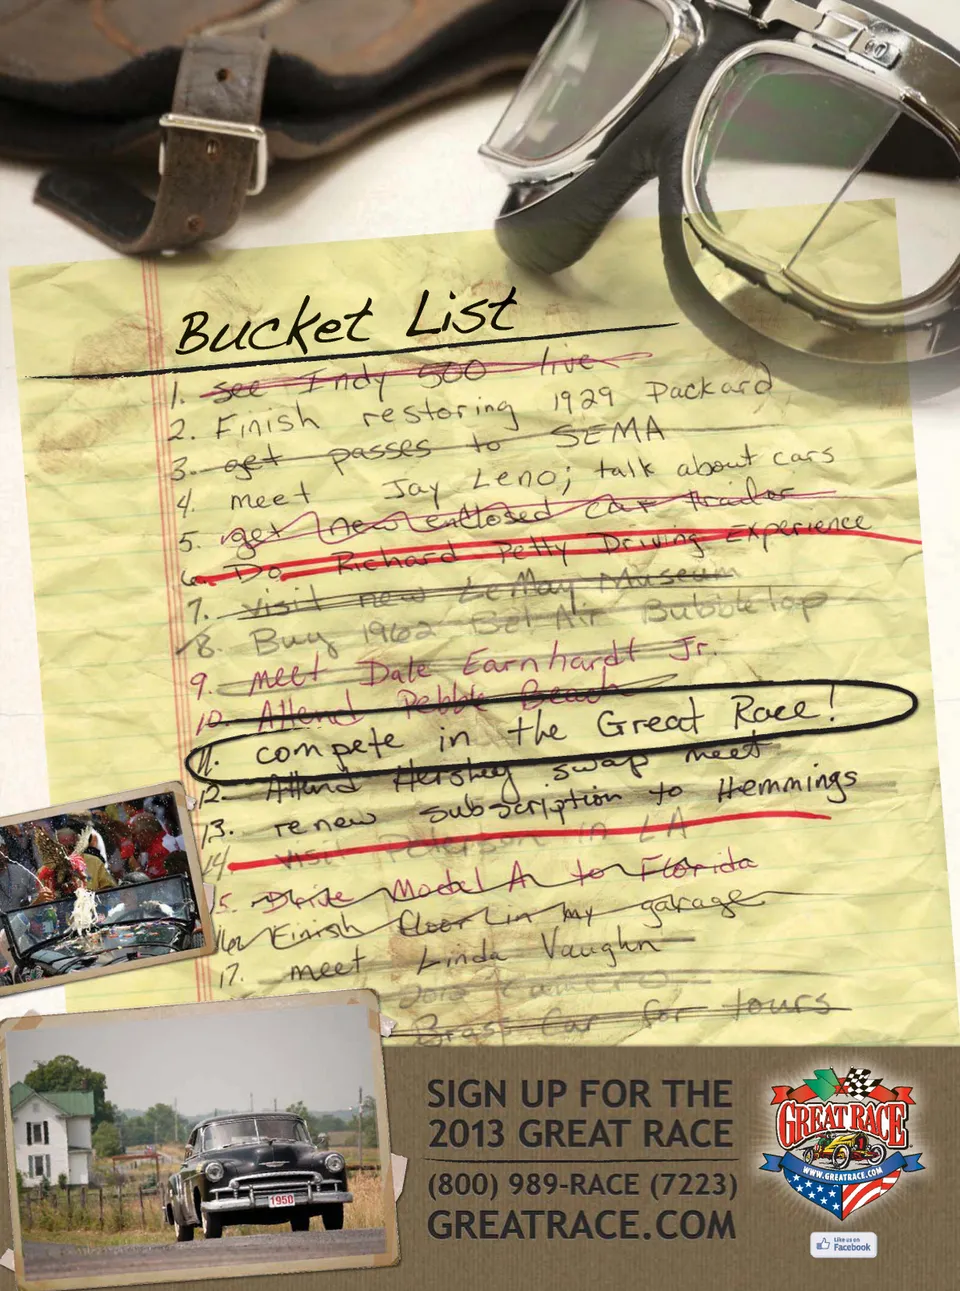 Bucket List
1. see Indy 500 live
2. Finish restoring 1929 Packard
3. get passes to SEMA
4. meet Jay Leno; talk about cars
5. get new enclosed car trailer
6. Do Richard Petty Driving Experience
7. Visit new LeMay Museum
8. Buy 1962 Bel Air Bubbletop
9. meet Dale Earnhardt Jr.
10. Attend Pebble Beach
11. compete in the Great Race!
12. Attend Hershey swap meet
13. renew subscription to Hemmings
14. Visit Peterson in LA
15. Drive Model A to Florida
16. Finish floor in my garage
17. meet Linda Vaughn
2012 Camero
Brass Car for tours
1950
SIGN UP FOR THE
2013 GREAT RACE
(800) 989-RACE (7223)
GREATRACE.COM
GREAT RACE
WWW.GREATRACE.COM
Like us on
Facebook